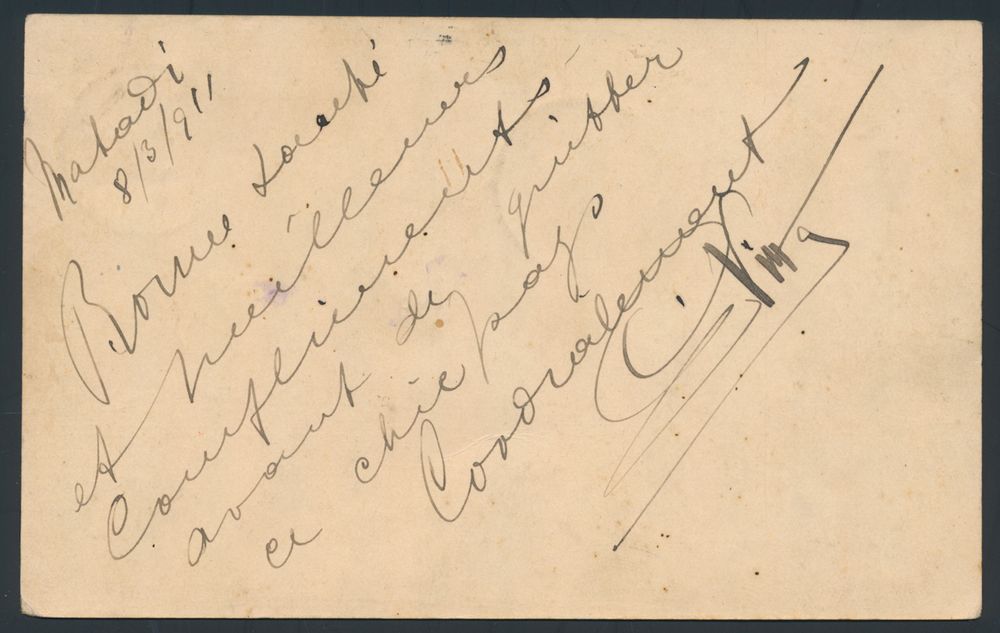 Matadi
8/3/911
Bonne santé
et meilleurs
compliments
avant de quitter
ce chic pays
Cordialement